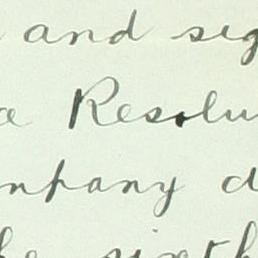 and sig
a Resolu
mpany d
he sixth